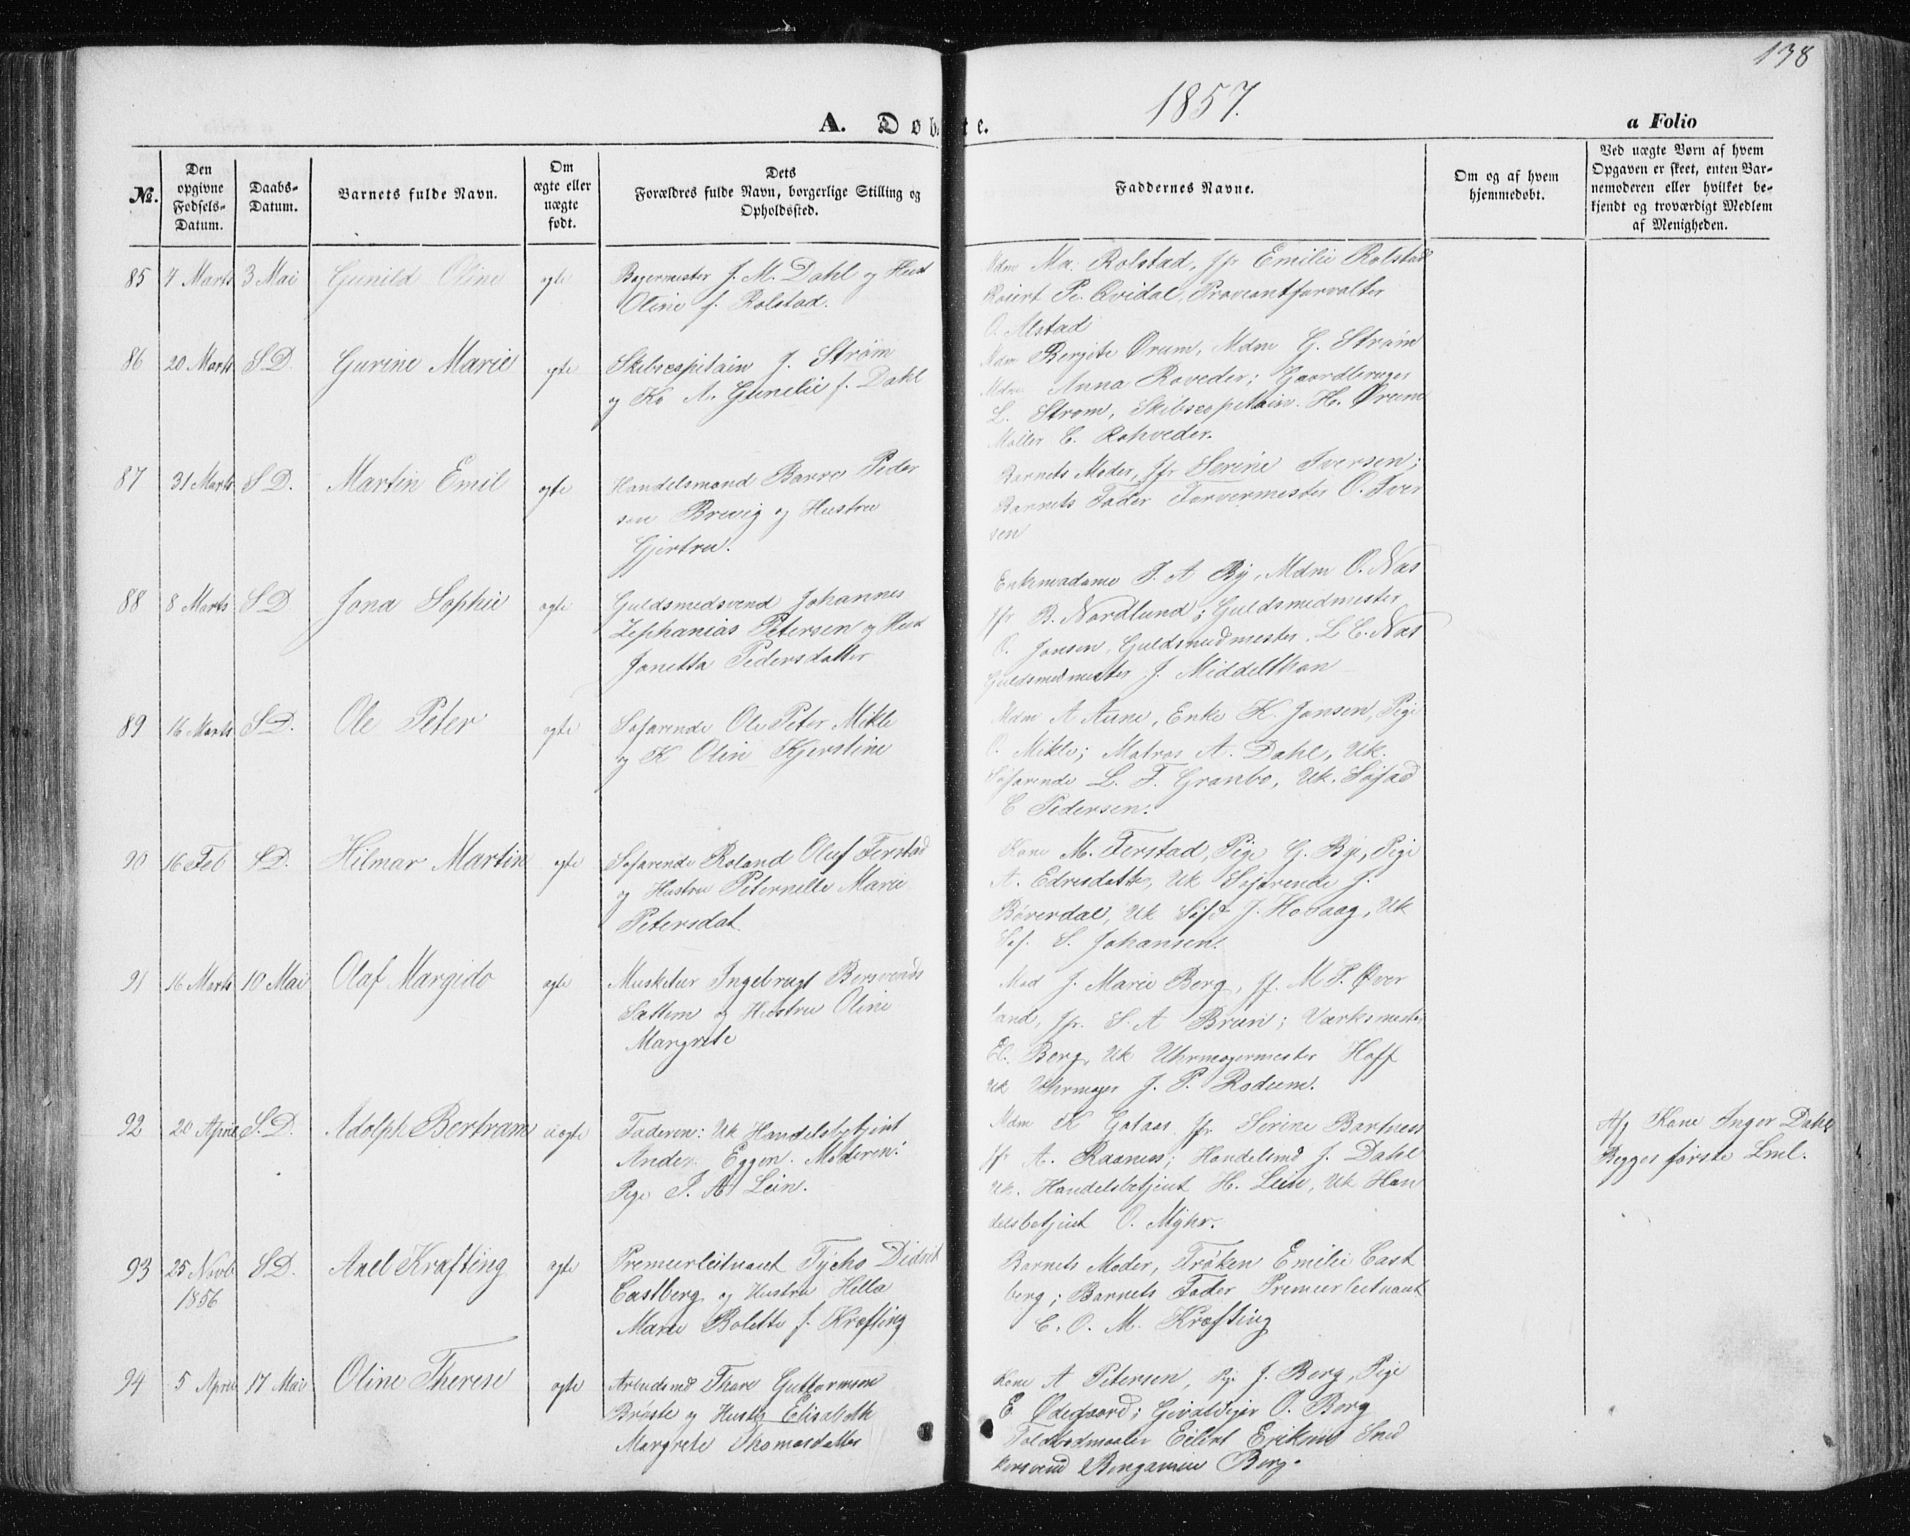 138
1857.
A. Døbte.
a Folio
No.
Den opgivne Fødsels-Datum.
Daabs-Datum.
Barnets fulde Navn.
Om ægte eller uægte født.
Dets Forældres fulde Navn, borgerlige Stilling og Opholdssted.
Faddernes Navne.
Om og af hvem hjemmedøbt.
Ved uægte Børn af hvem Opgaven er skeet, enten Barnemoderen eller hvilket bekjendt og troværdigt Medlem af Menigheden.
85 7 Marts 3 Mai Gunild Oline ogte
Bagermester J. M. Dahl og Hust
Oline f. Rolstad.
Mdm Ma. Rolstad, Jfr Emilie Rolstad
Pe. Qvidal, Proviantforvalter
O. Alstad
86 20 Marts S D. Gurine Marie ogte
Skibscapitain J. Strøm
og Ko A. Gunelie f. Dahl
Mdm Bergite Ørum, Mdm G. Strøm
Mdm Anna Roveder; Gaardbruger
L. Strøm, Skibscapitain H. Ørum
Møller C. Rohveder.
87 31 Marts S D. Martin Emil ogte
Handelsmand Barre Peder
sen Brevig og Hustru
Gjertru.
Barnets Moder, Jfr Serine Iversen;
Barnets Fader Farvermester O. Iver
sen
88 8 Marts S D Jona Sophie ogte
Guldsmedsvend Johannes
Zephanias Petersen og Hust
Janetta Pedersdatter
Enkemadame J. A By, Mdm O. Næs
Jfr B. Nordlund; Guldsmedmester
O. Jansen, Guldsmedmester L C. Næs
Guldsmedmester J. Middelthon
89 16 Marts S D. Ole Peter ogte
Søfarende Ole Peter Mikle
og K Olin Kjerstine
Mdm A Aune, Enke K. Jansen, Pige
O. Mikle; Matros A. Dahl, Uk.
Søfarende L. F. Granbo, Uk. Søfad
C Pedersen.
90 16 Feb S D. Hilmar Martin ogte
Søfarende Roland Oluf Ferstad
og Hustru Peternille Marie
Petersdat
Kone M. Ferstad, Pige G. By, Pige
A. Edresdatte, Uk Søfarende J.
Bøverdal, Uk Søf J. Hovaag, Uk
Søf. S. Johansen.
91 16 Marts 10 Mai Olaf Margido ogte
Musketer Ingebrigt Bersvends
Sættem og Hustru Oline
Margrete
Mad J. Marie Berg, Jf. M P. Øver
land, Jfr. S. A Bruun; Værksmester
El. Berg, Uk Uhrmagermester Hoff
Uk Uhrmager J. P. Rodum.
92 20 April S. D. Adolph Bertram uogte
Faderen: Uk Handelsbetjent
Ander Eggen. Moderen:
Pige J. A. Lein.
Mdm K Gotaas Jfr Serine Bartness
Jfr A. Raaness; Handelsmd J. Dahl
Uk. Handelsbetjent H. Lein, Uk Han
delsbetjent O. Myhr.
Af Kone Inger Dahl
Begges første Lml.
93 25 Novb 1856 S D. Axel Krafting ogte
Premierleitnant Tycho Didrik
Castberg og Hustru Hella
Marie Bolette f. Krefting
Barnets Moder, Frøken Emilie Cast
berg; Barnets Fader Premierleitnant
C. O. M. Krefting
94 5 April 17 Mai Oline Therese ogte
Arbeidsmd Thore Guttormsen
Brøste og Hustr Elisabeth
Margrete Thomasdatter
Kone A Petersen, Pige J. Berg, Pige
E Ødegaard; O. Berg
Eilert Eriksen Sned
kersvend Bengamin Berg.